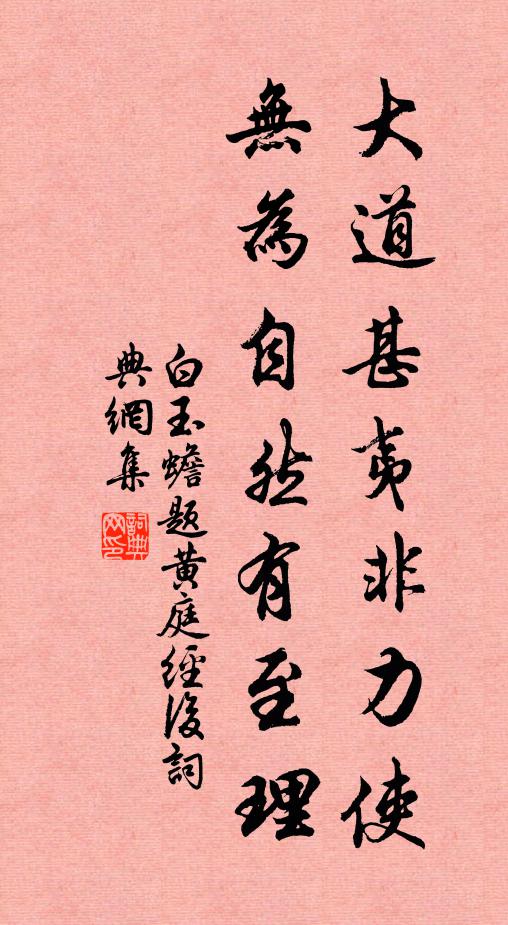 大道甚夷非力使
無為自然有至理
白玉蟾題黄庭經後詞
典網集
詞典
网印